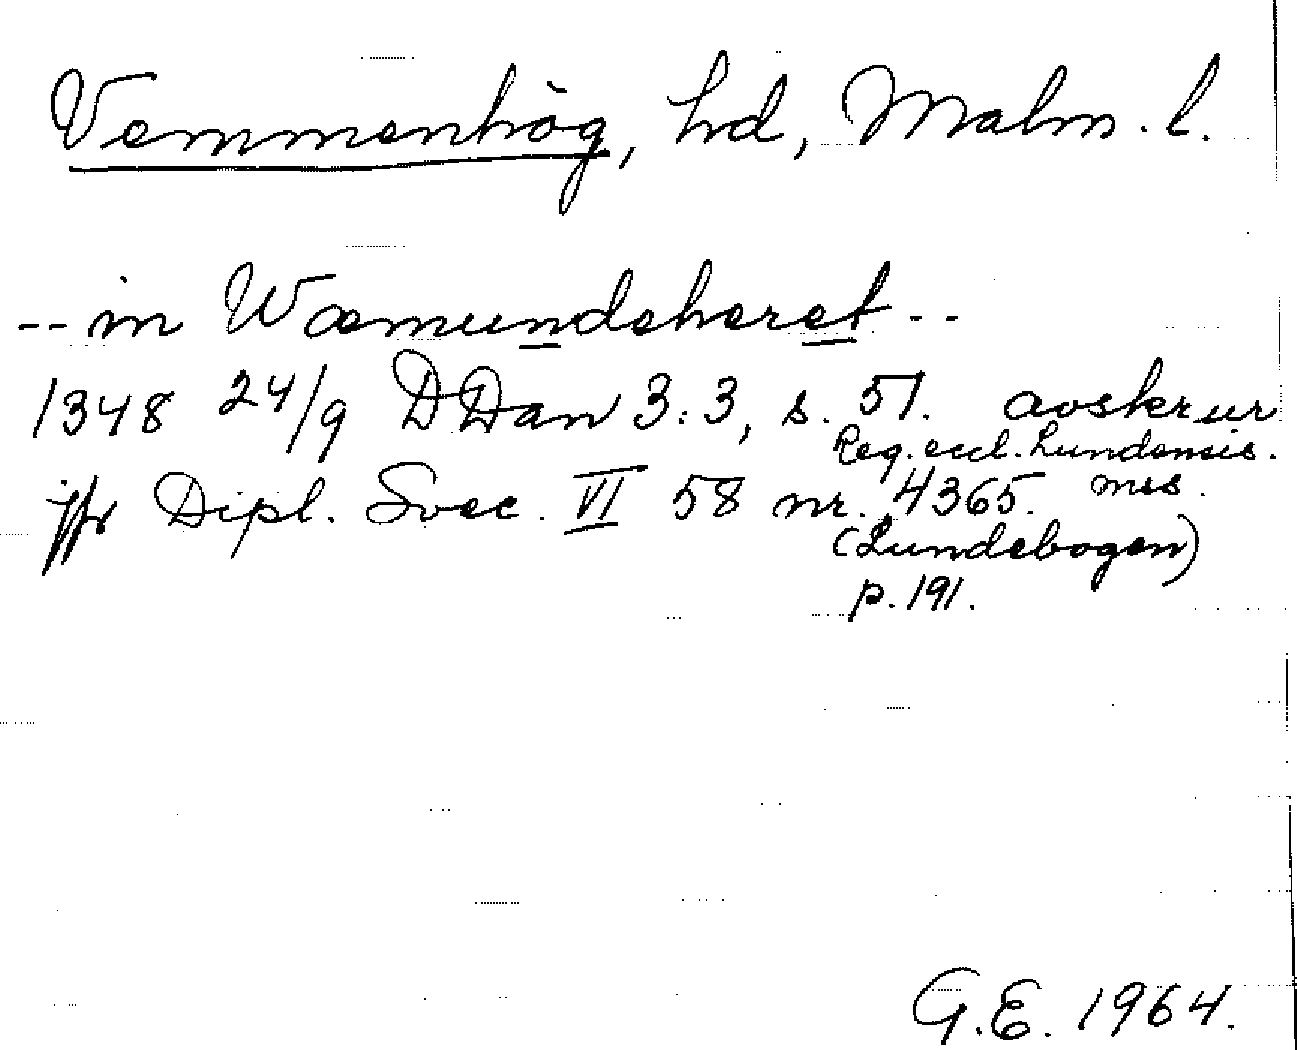 Vemmenhög, hd, Malm. l.
-- in Wæmundeheret --
1348 24/9 DDan 3:3, s. 51. avskr ur
Reg. eccl. Lundensis.
jfr Dipl. Svec. VI 58 nr. 4365. mss.
(Lundebogen)
p. 191.
G.E. 1964.